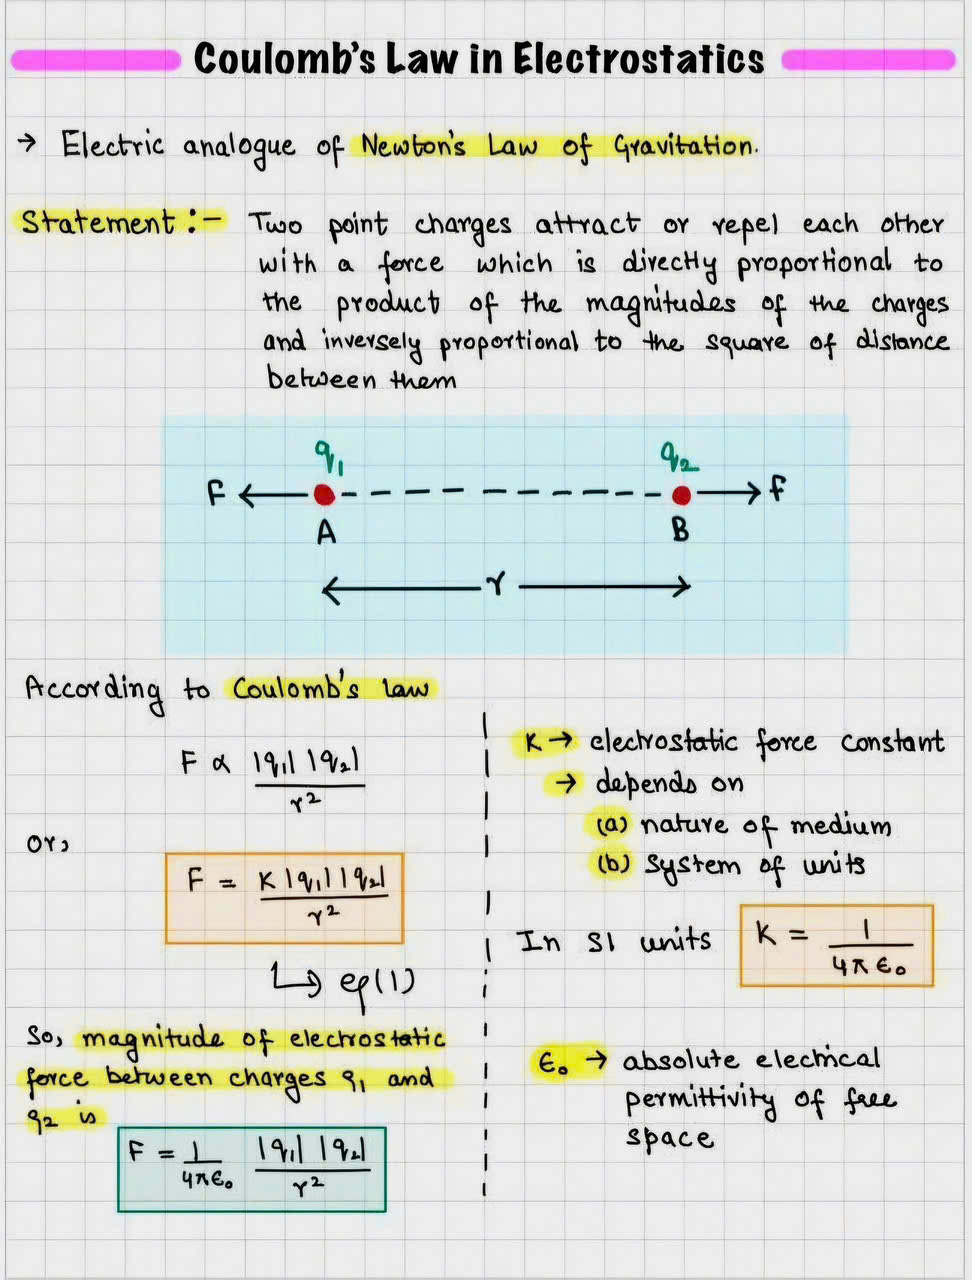 Coulomb's Law in Electrostatics
→ Electric analogue of Newton's Law of Gravitation.
Statement :- Two point charges attract or repel each other
with a force which is directly proportional to
the product of the magnitudes of the charges
and inversely proportional to the square of distance
between them
q₁ q₂
F F
A B
r
According to Coulomb's law
F ∝ |q₁| |q₂| / r²
or,
F = K |q₁| |q₂| / r²
↳ eq(1)
So, magnitude of electrostatic
force between charges q₁ and
q₂ is
F = 1/4πϵ₀ |q₁| |q₂| / r²
K → electrostatic force constant
→ depends on
(a) nature of medium
(b) system of units
In SI units K = 1/4πϵ₀
ϵ₀ → absolute electrical
permittivity of free
space